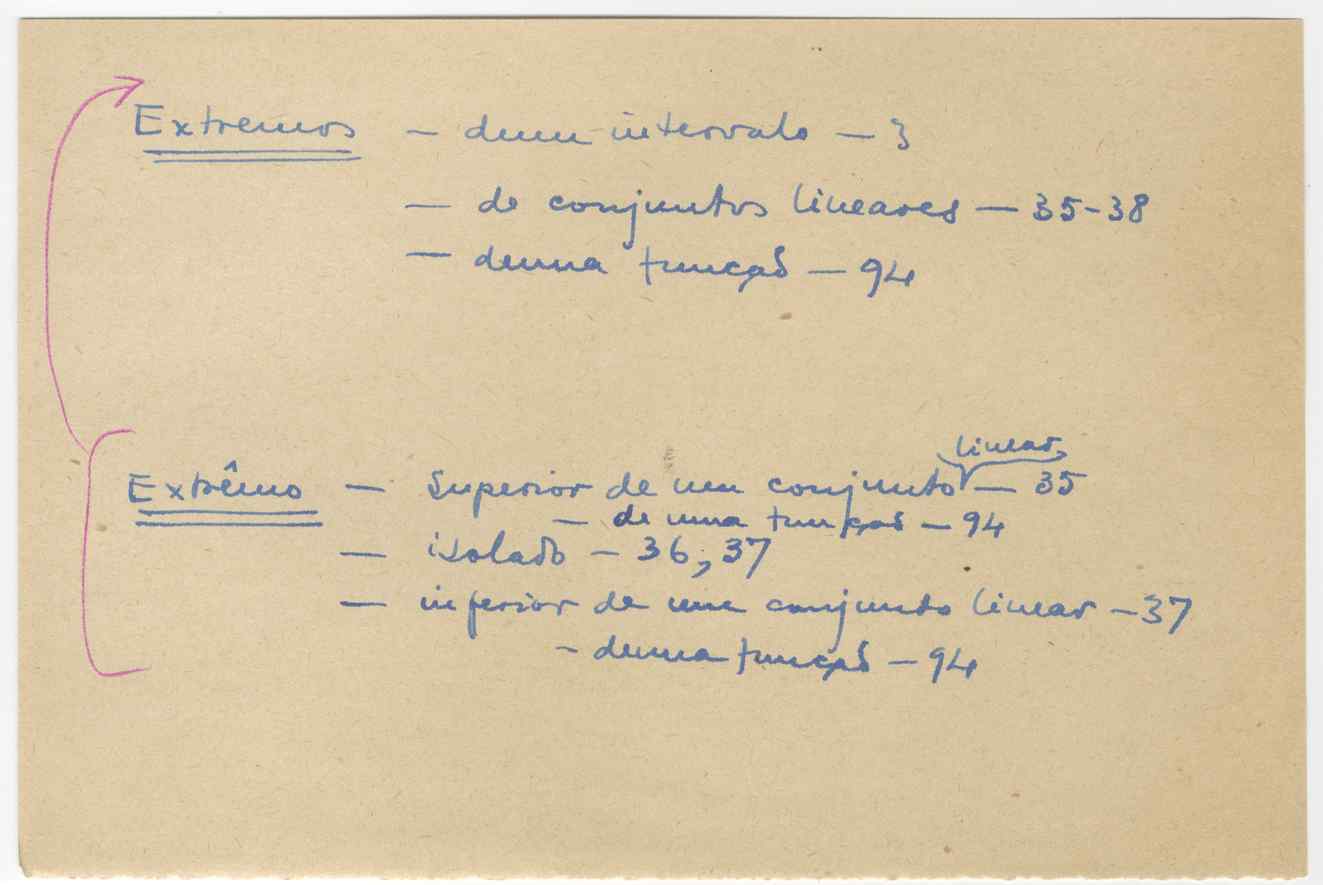 Extremos — dum intervalo — 3
— de conjuntos lineares — 35-38
— duma função — 94
linear
Extrêmo — Superior de um conjunto — 35
— de uma função — 94
— isolado — 36, 37
— inferior de um conjunto linear — 37
- duma função — 94